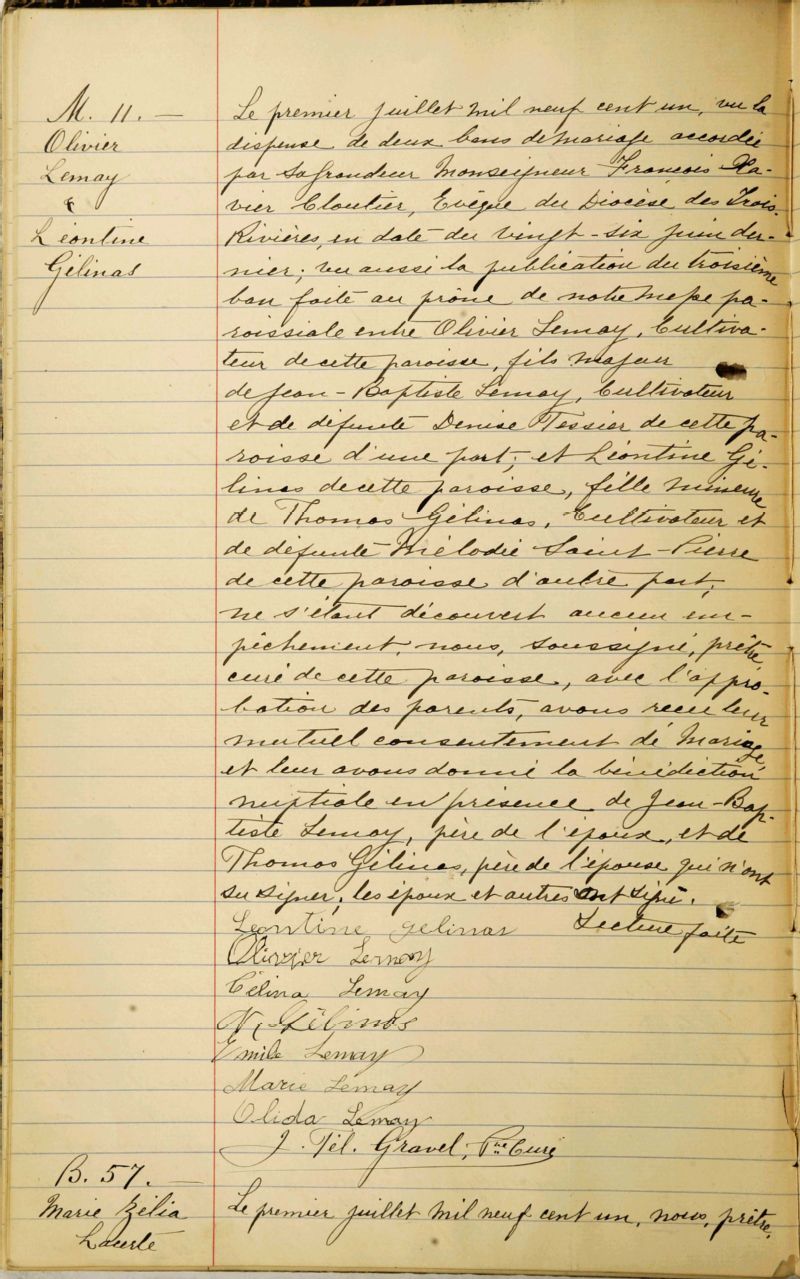 M. 11. —
Olivier
Lemay
&
Léontine
Gélinas
Le premier juillet mil neuf cent un, vu la
dispense de deux bans de mariage accordée
par Sa Grandeur Monseigneur François Xa-
vier Cloutier, Evêque du Diocèse des Trois-
Rivières, en date du vingt-six juin der-
nier; vu aussi la publication du troisième
ban faite au prône de notre messe pa-
roissiale entre Olivier Lemay, Cultiva-
teur de cette paroisse, fils majeur
de Jean-Baptiste Lemay, Cultivateur
et de défunte Denise Tessier de cette pa-
roisse d'une part; et Léontine Gé-
linas de cette paroisse, fille mineure
de Thomas Gélinas, Cultivateur et
de défunte Mélodie Saint-Pierre
de cette paroisse d'autre part;
ne s'étant découvert aucun em-
pêchement, nous, soussigné, prêtre
curé de cette paroisse, avec l'appro-
bation des parents, avons reçu leur
mutuel consentement de mariage,
et leur avons donné la bénédiction
nuptiale en présence de Jean-Bap-
tiste Lemay, père de l'époux, et de
Thomas Gélinas, père de l'épouse qui n'ont
su signer; les époux et autres ont signé.
Lecture faite
Leontine gelinas
Olivier Lemay
Célina Lemay
N. Gélinas
Emile Lemay
Marie Lemay
Olida Lemay
J. Tél. Gravel, Ptre Curé
B. 57. —
Marie Zélia
Lacerte
Le premier juillet mil neuf cent un, nous, prêtre,